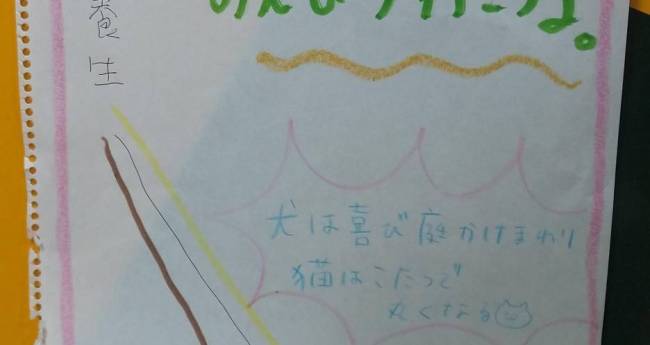 養生
犬は喜び庭かけまわり
猫はこたつで
丸くなる